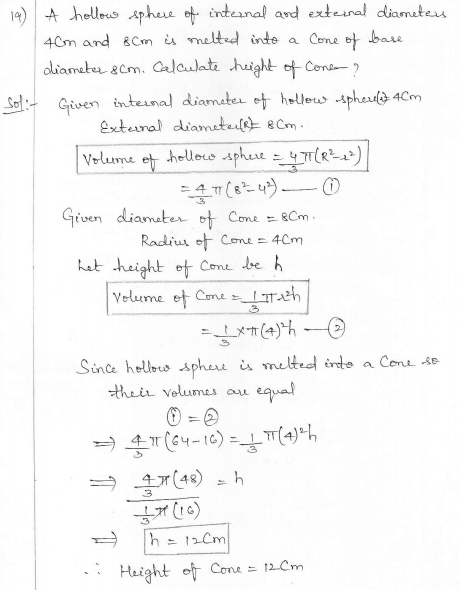 19) A hollow sphere of internal and external diameters
4Cm and 8Cm is melted into a Cone of base
diameter 8Cm. Calculate height of Cone ?
Sol:- Given internal diameter of hollow sphere(r)= 4Cm
External diameter(R)= 8Cm.
Volume of hollow sphere = 4/3 π(R²-r²)
= 4/3 π(8²-4²) —— ①
Given diameter of Cone = 8Cm.
Radius of Cone = 4Cm
Let height of Cone be h
Volume of Cone = 1/3 πr²h
= 1/3 ×π(4)²h —— ②
Since hollow sphere is melted into a Cone so
their volumes are equal
① = ②
⇒ 4/3 π(64-16) = 1/3 π(4)²h
⇒ 4/3 π(48) / 1/3 π(16) = h
⇒ h = 12Cm
∴ Height of Cone = 12Cm